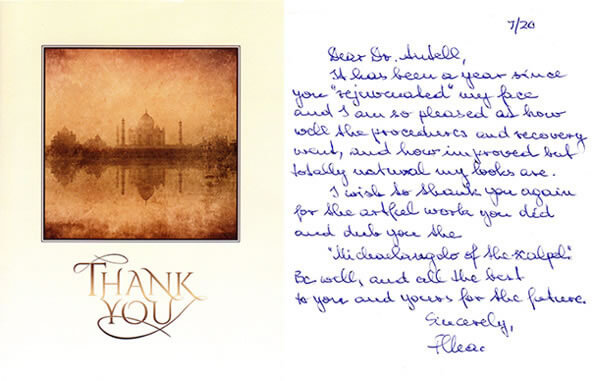 THANK
YOU
7/20
Dear Dr. Antell,
It has been a year since
you "rejuvenated" my face
and I am so pleased at how
well the procedures and recovery
went, and how improved but
totally natural my looks are.
I wish to thank you again
for the artful work you did
and dub you the
"Michaelangolo of the scalpel."
Be well, and all the best
to you and yours for the future.
Sincerely,